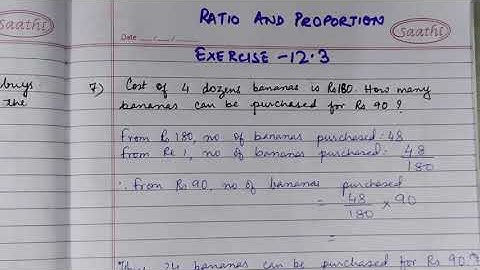 Saathi
RATIO AND PROPORTION
Saathi
Date ... / ... / ...
EXERCISE - 12.3
buys
the
7) Cost of 4 dozens bananas is Rs 180. How many
bananas can be purchased for Rs 90?
From Rs 180, no of bananas purchased: 48
From Re 1, no of bananas purchased: 48/180
∴ from Rs 90, no of bananas purchased
= 48/180 × 90
=
Thus 24 bananas can be purchased for Rs 90